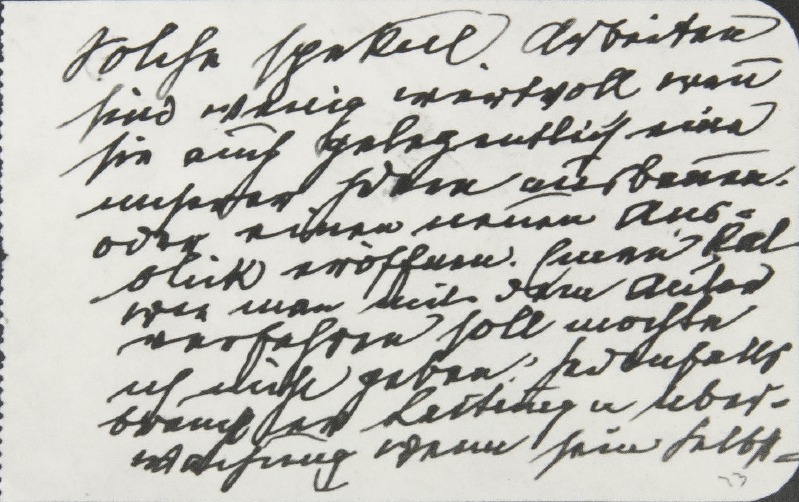 Solche spekul. Arbeiten
sind wenig wertvoll wenn
sie auch gelegentlich eine
unserer Ideen ausbauen.
oder einen neuen Aus-
blick eröffnen. Einen Rat
wie man mit dem Autor
verfahren soll mochte
ich nicht geben. Jedenfalls
braucht er Leitung u Uber-
wachung wenn sein Selbst-